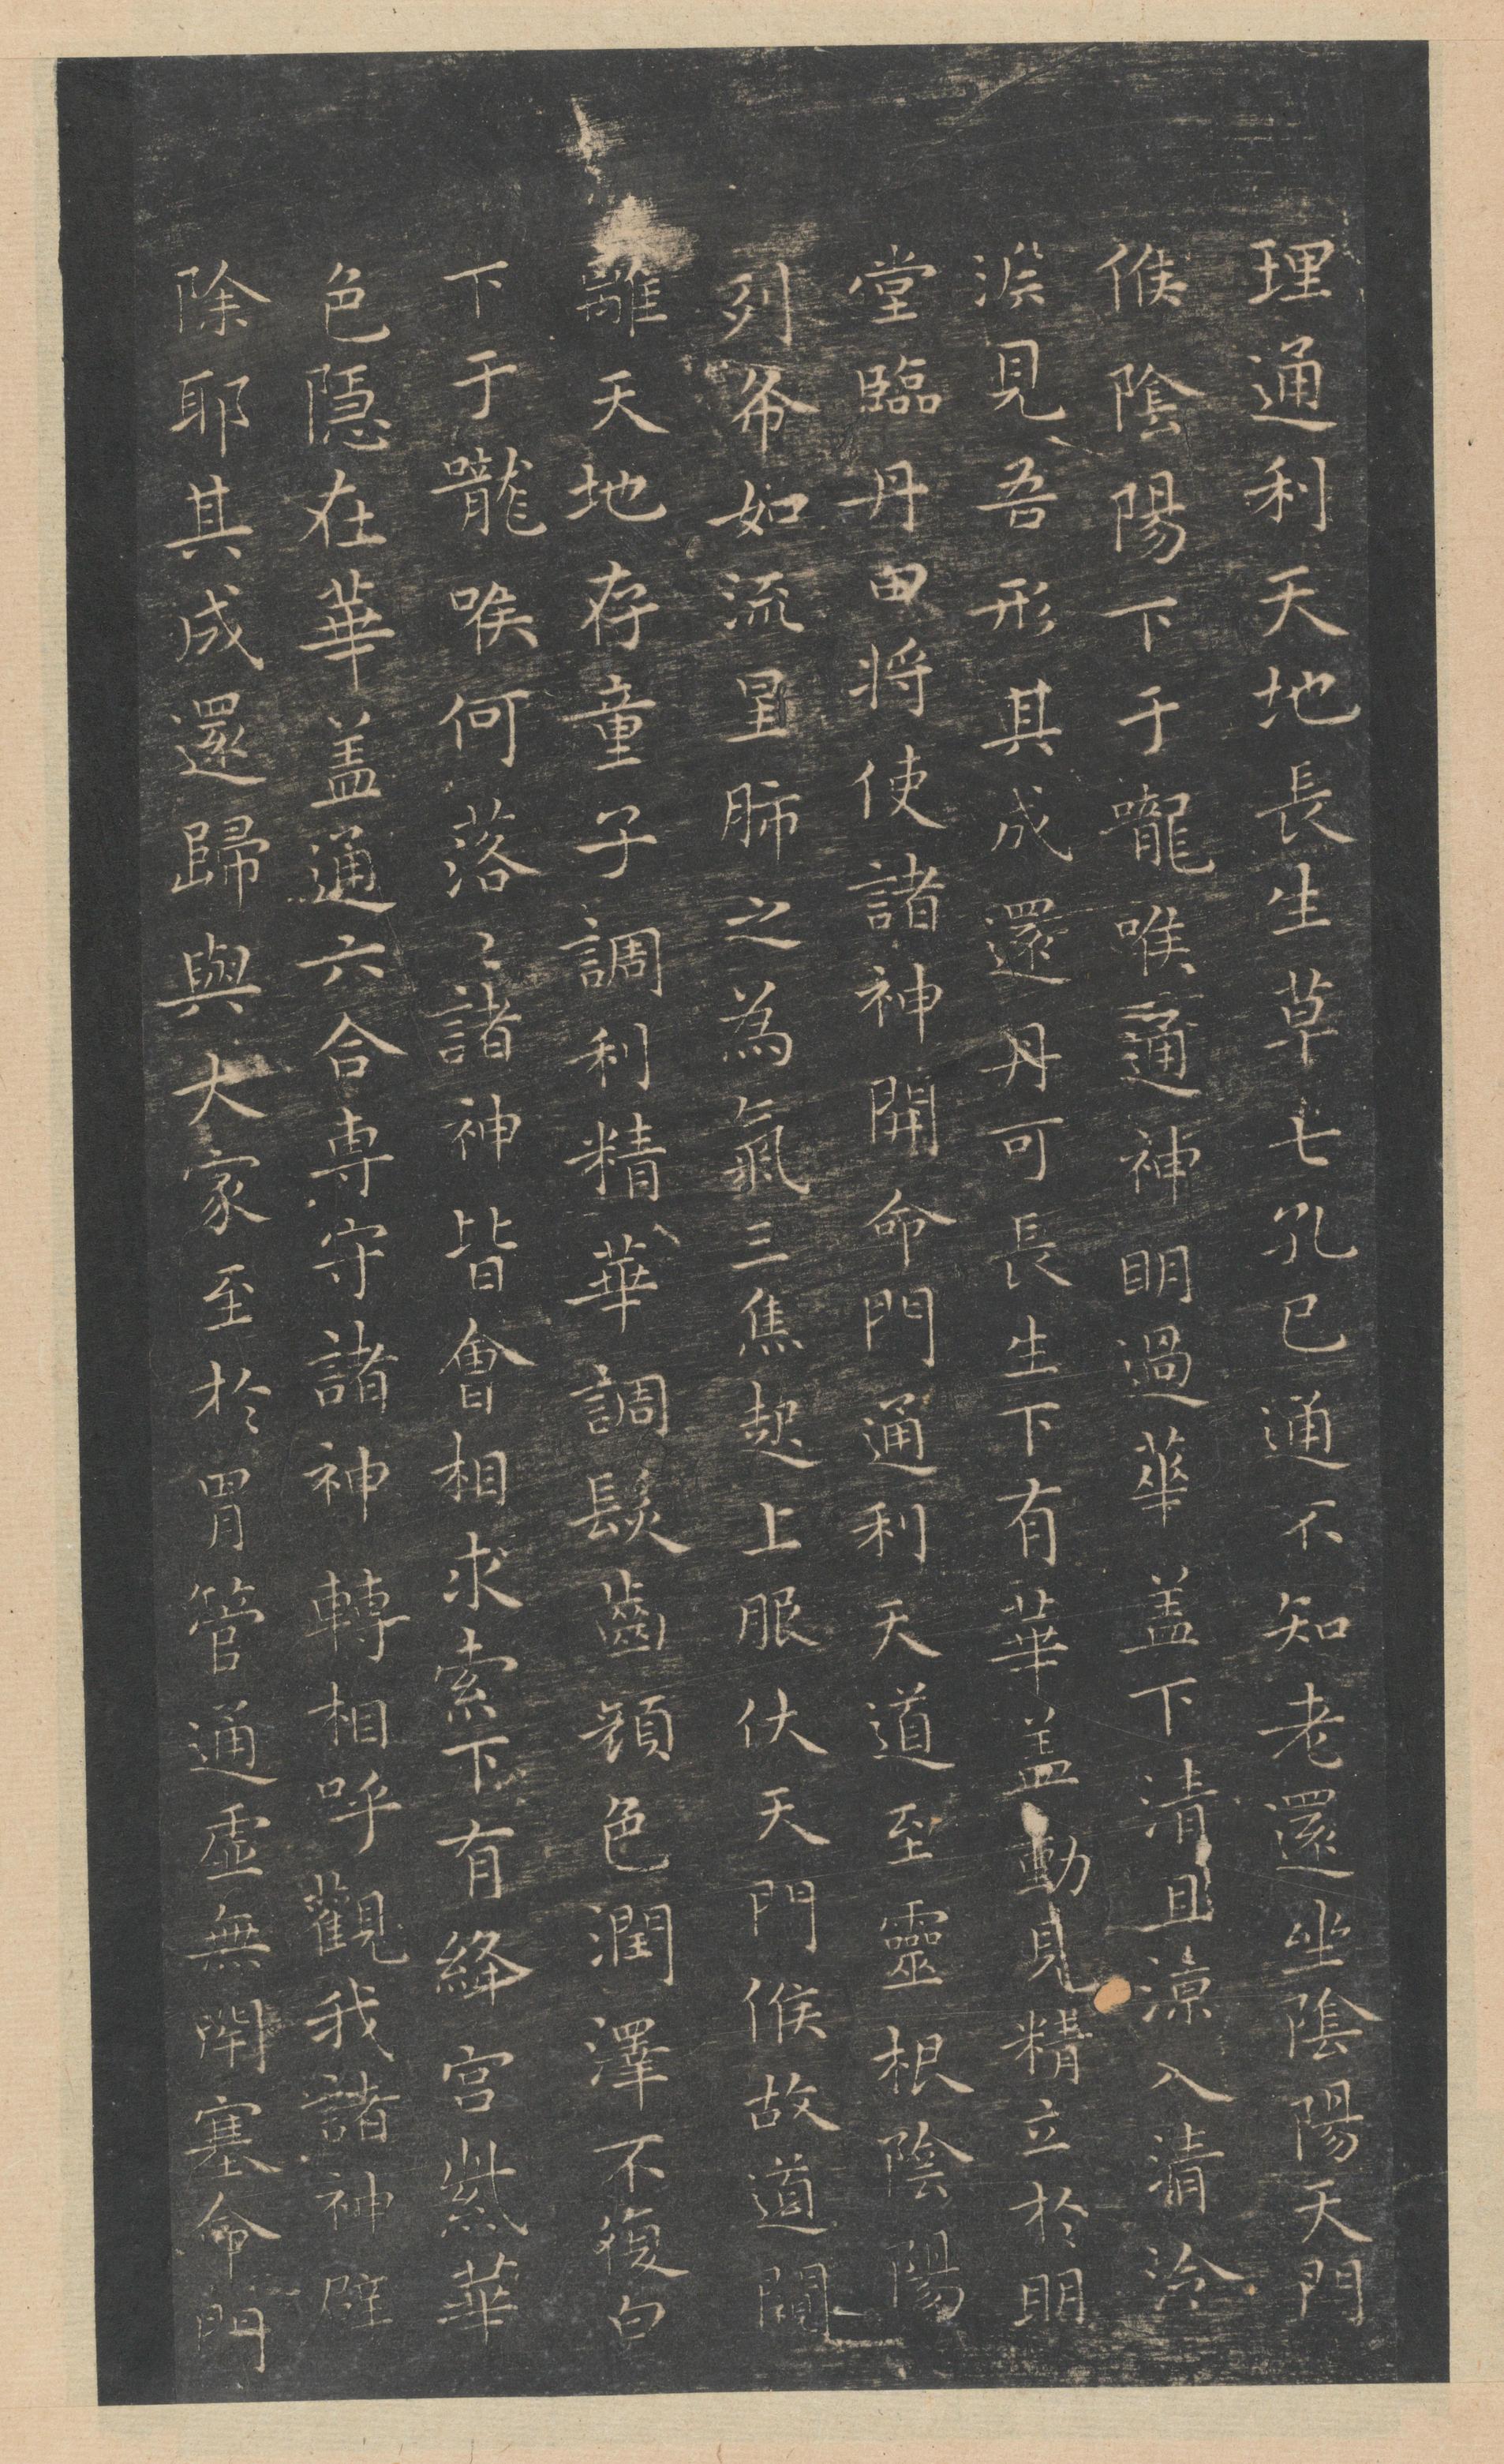 理通利天地長生草七孔已通不知老還坐陰陽天門
候陰陽下于嚨喉通神明過華蓋下清且涼入清泠
淵見吾形其成還丹可長生下有華蓋動見精立於明
堂臨丹田將使諸神開命門通利天道至靈根陰陽
列布如流星肺之為氣三焦起上服伏天門候故道闚
離天地存童子調利精華調髮齒顏色潤澤不復白
下于嚨喉何落〻諸神皆會相求索下有絳宮紫華
色隱在華蓋通六合專守諸神轉相呼觀我諸神辟
除耶其成還歸與大家至於胃管通虛無閉塞命門